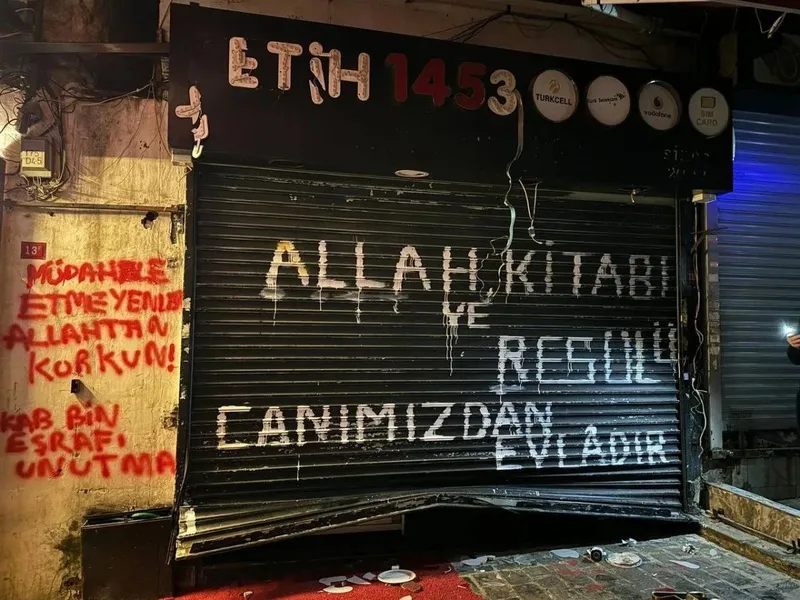 ETİH 1453
TURKCELL
Türk Telekom
vodafone
SIM
CARD
ALLAH KİTABI
VE
RESÛLÜ
CANIMIZDAN
EVLÂDIR
13
MÜDAHELE
ETMEYENLER
ALLAHTAN
KORKUN!
KAB BİN
EŞRAFI
UNUTMA